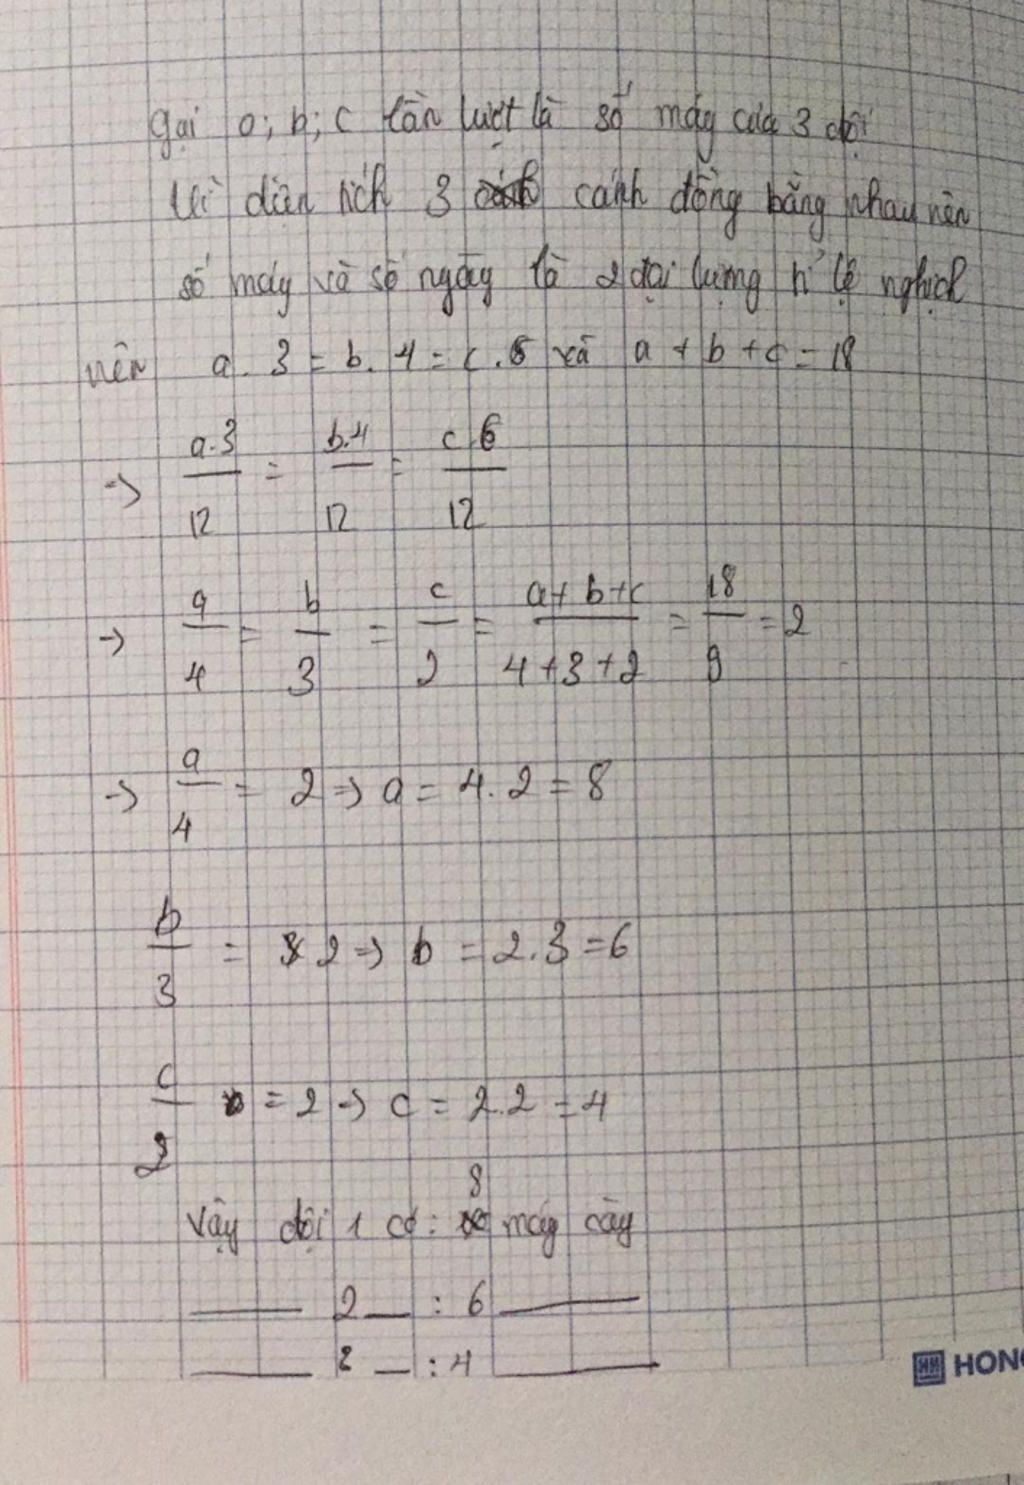 gọi a; b; c lần lượt là số máy của 3 đội
Vì diện tích 3 cánh đồng bằng nhau nên
số máy và số ngày là 2 đại lượng tỉ lệ nghịch
nên a. 3 = b. 4 = c. 6 và a + b + c = 18
→ a.3/12 = b.4/12 = c.6/12
→ a/4 = b/3 = c/2 = a+b+c/4+3+2 = 18/9 = 2
→ a/4 = 2 → a = 4.2 = 8
b/3 = 2 → b = 2.3 = 6
c/2 = 2 → c = 2.2 = 4
Vậy đội 1 có: 8 máy cày
—— 2 — : 6 ——
—— — : 4 ——
HONG